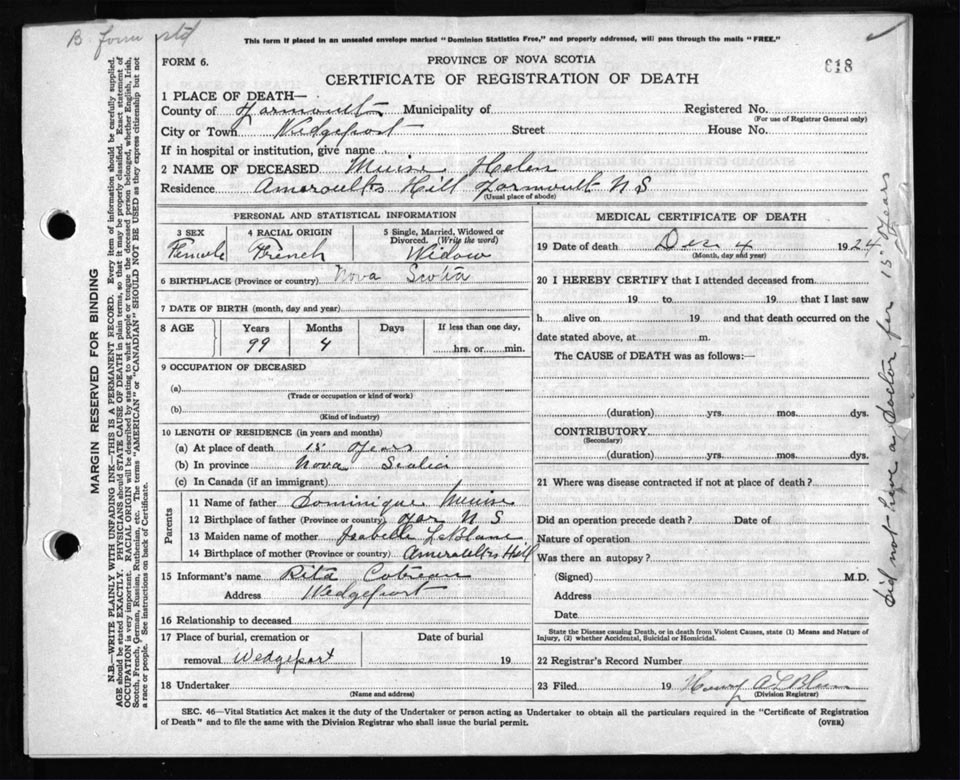 B. form std
This form if placed in an unsealed envelope marked "Dominion Statistics Free," and properly addressed, will pass through the mails "FREE."
FORM 6.
PROVINCE OF NOVA SCOTIA
CERTIFICATE OF REGISTRATION OF DEATH
618
1 PLACE OF DEATH—
County of Yarmouth Municipality of Registered No.
(For use of Registrar General only)
City or Town Wedgeport Street House No.
If in hospital or institution, give name
2 NAME OF DECEASED Muise Helen
Residence Ameraults Hill Yarmouth N S
(Usual place of abode)
PERSONAL AND STATISTICAL INFORMATION
3 SEX 4 RACIAL ORIGIN 5 Single, Married, Widowed or Divorced. (Write the word)
Female French Widow
6 BIRTHPLACE (Province or country) Nova Scotia
7 DATE OF BIRTH (month, day and year)
8 AGE Years Months Days If less than one day,
99 4 hrs. or min.
9 OCCUPATION OF DECEASED
(a)
(Trade or occupation or kind of work)
(b)
(Kind of industry)
10 LENGTH OF RESIDENCE (in years and months)
(a) At place of death 15 years
(b) In province Nova Scotia
(c) In Canada (if an immigrant)
Parents
11 Name of father Dominique Muise
12 Birthplace of father (Province or country) Yar N S
13 Maiden name of mother Isabelle LeBlanc
14 Birthplace of mother (Province or country) Ameraults Hill
15 Informant's name Rita Cotreau
Address Wedgeport
16 Relationship to deceased
17 Place of burial, cremation or Date of burial
removal Wedgeport 19
18 Undertaker
(Name and address)
MEDICAL CERTIFICATE OF DEATH
19 Date of death Dec 4 1924
(Month, day and year)
20 I HEREBY CERTIFY that I attended deceased from
19 to 19 that I last saw
h alive on 19 and that death occurred on the
date stated above, at m.
The CAUSE of DEATH was as follows:—
(duration) yrs. mos. dys.
CONTRIBUTORY
(Secondary)
(duration) yrs. mos. dys.
21 Where was disease contracted if not at place of death?
Did an operation precede death? Date of
Nature of operation
Was there an autopsy?
(Signed) M.D.
Address
Date
State the Disease causing Death, or in death from Violent Causes, state (1) Means and Nature of
Injury, (2) whether Accidental, Suicidal or Homicidal.
22 Registrar's Record Number
23 Filed 19 Henry A LeBlanc
(Division Registrar)
SEC. 46—Vital Statistics Act makes it the duty of the Undertaker or person acting as Undertaker to obtain all the particulars required in the "Certificate of Registration
of Death" and to file the same with the Division Registrar who shall issue the burial permit.
(OVER)
did not have a doctor for 15 years
MARGIN RESERVED FOR BINDING
N.B.—WRITE PLAINLY WITH UNFADING INK—THIS IS A PERMANENT RECORD. Every item of information should be carefully supplied.
AGE should be stated EXACTLY. PHYSICIANS should STATE CAUSE OF DEATH in plain terms, so that it may be properly classified. Exact statement of
OCCUPATION is very important. RACIAL ORIGIN will be described by stating to what people or tongue the deceased person belonged, whether English, Irish,
Scotch, French, German, Russian, Ruthenian, etc. The terms "AMERICAN" or "CANADIAN" SHOULD NOT BE USED as they express citizenship but not
a race or people. See instructions on back of Certificate.